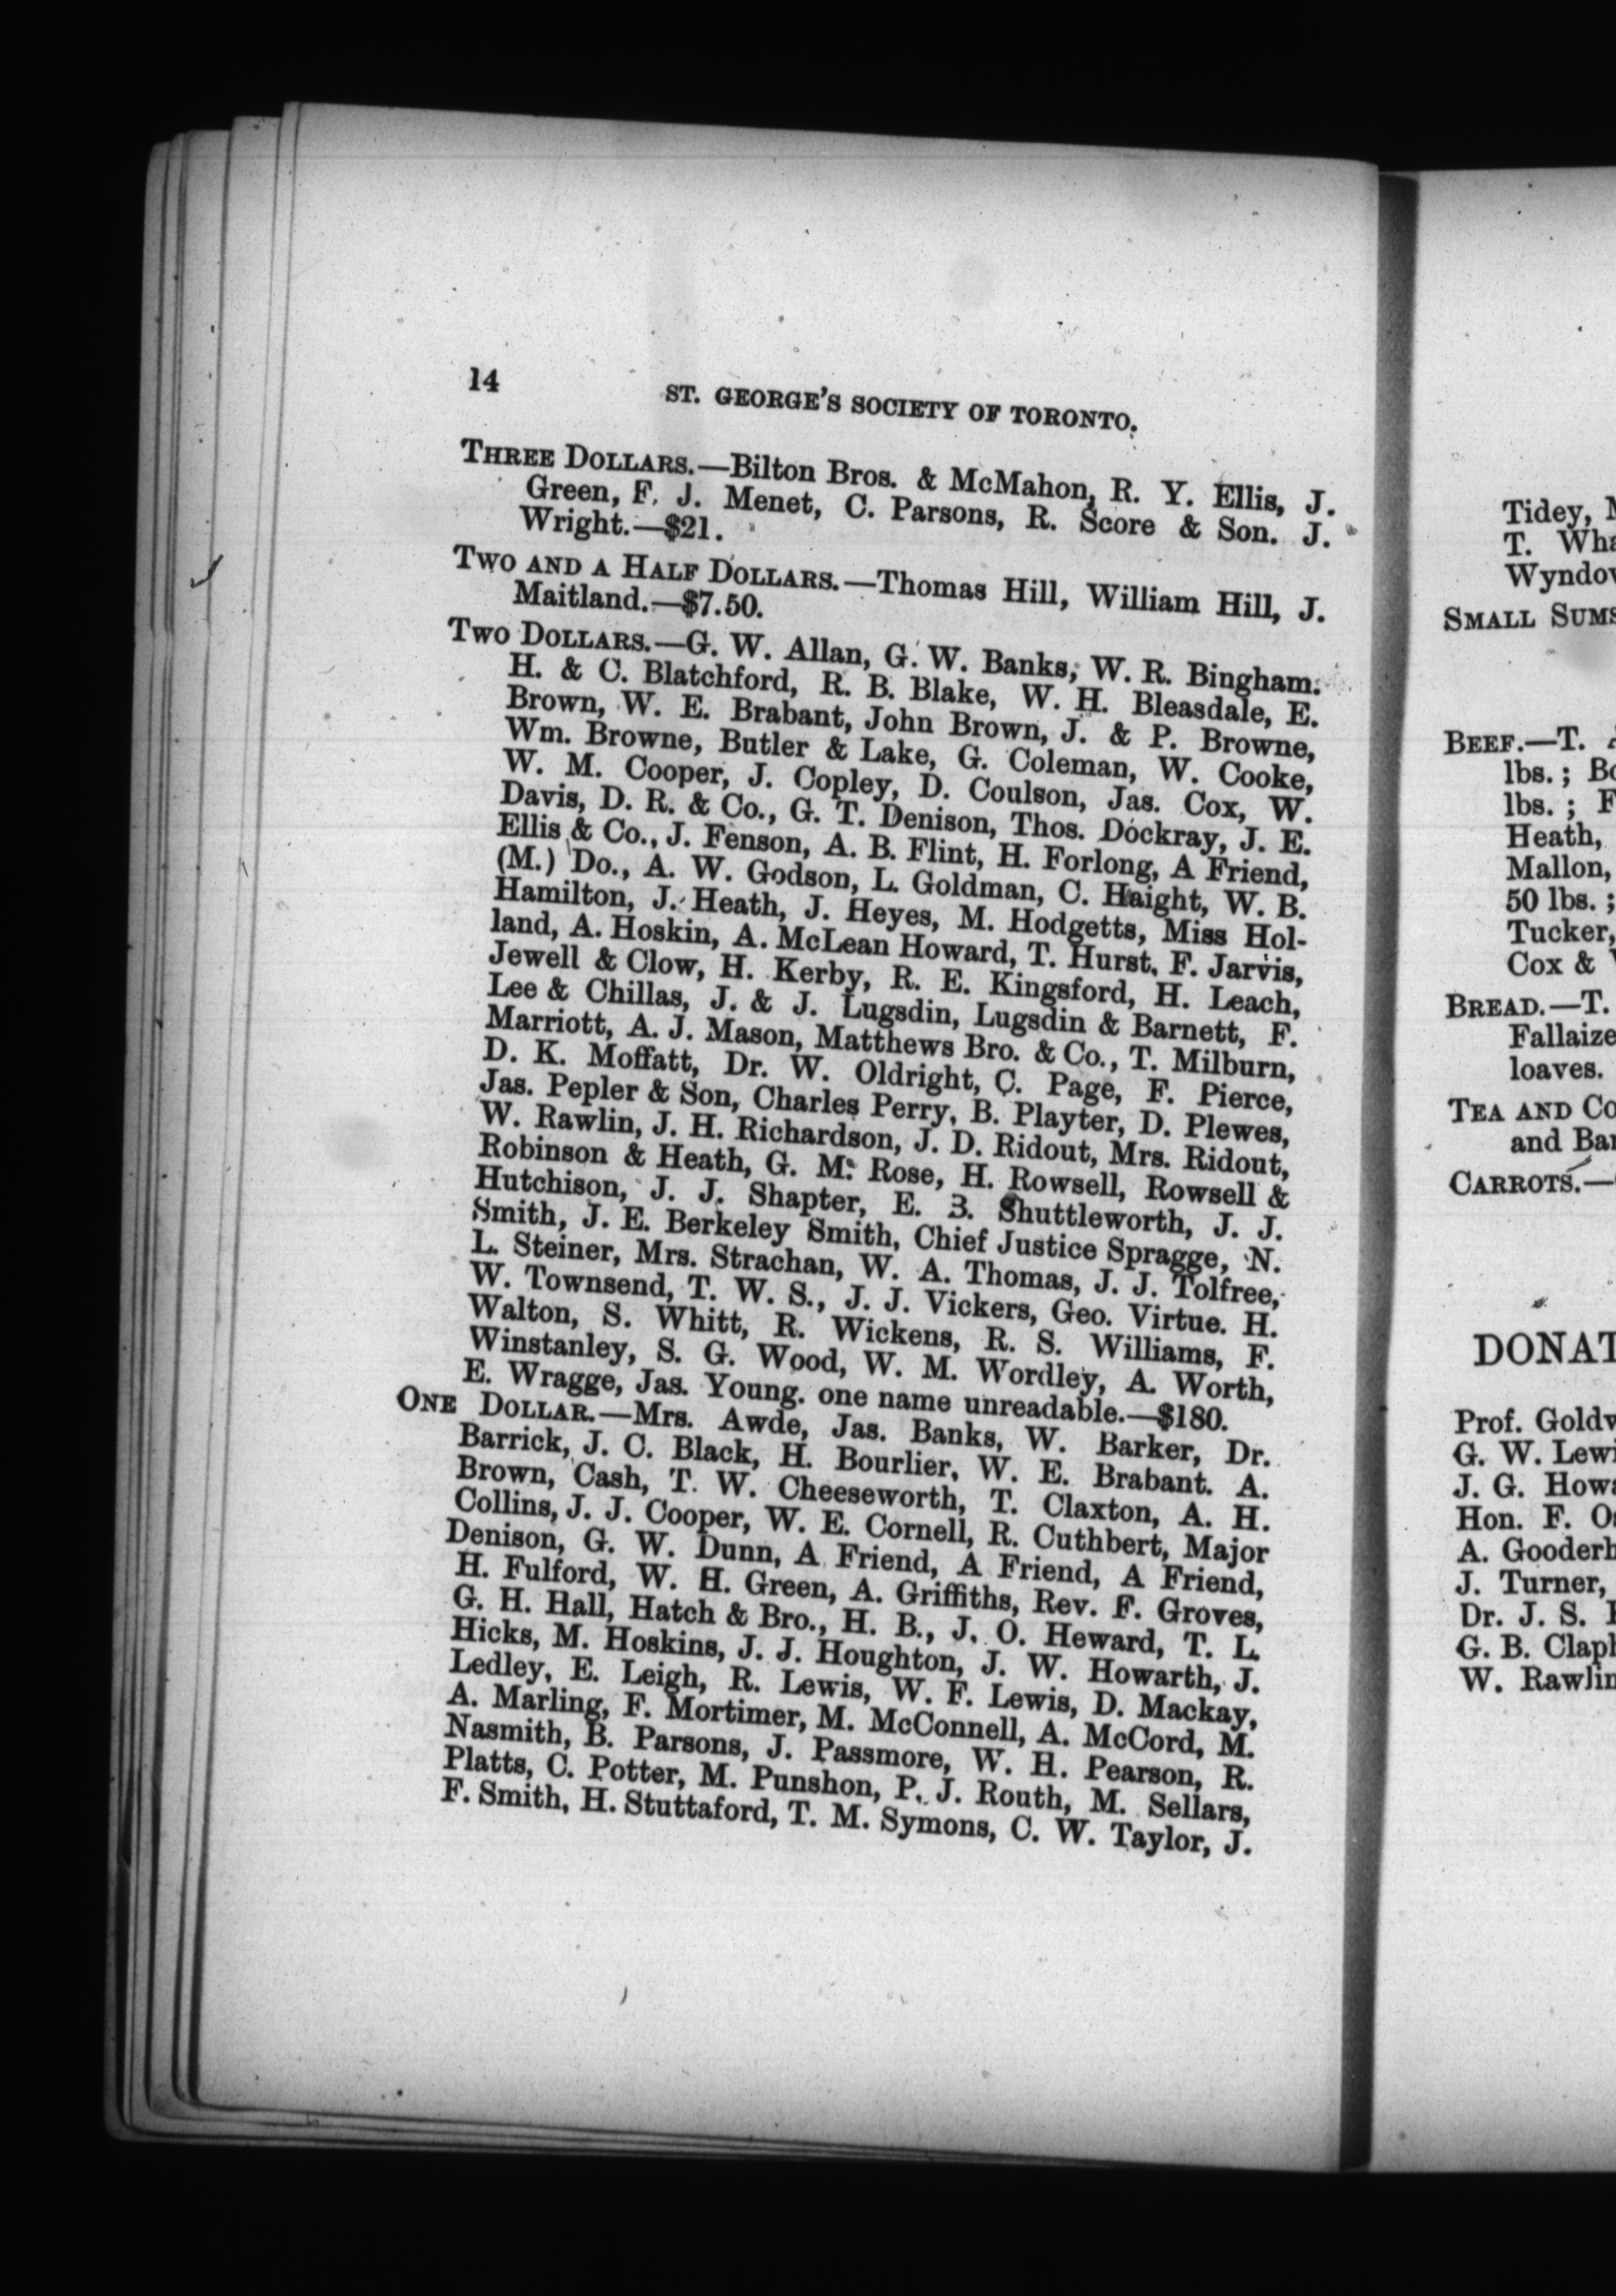 14
ST. GEORGE'S SOCIETY OF TORONTO.
THREE DOLLARS.—Bilton Bros. & McMahon, R. Y. Ellis, J.
Green, F. J. Menet, C. Parsons, R. Score & Son. J.
Wright.—$21.
TWO AND A HALF DOLLARS.—Thomas Hill, William Hill, J.
Maitland.—$7.50.
TWO DOLLARS.—G. W. Allan, G. W. Banks, W. R. Bingham.
H. & C. Blatchford, R. B. Blake, W. H. Bleasdale, E.
Brown, W. E. Brabant, John Brown, J. & P. Browne,
Wm. Browne, Butler & Lake, G. Coleman, W. Cooke,
W. M. Cooper, J. Copley, D. Coulson, Jas. Cox, W.
Davis, D. R. & Co., G. T. Denison, Thos. Dockray, J. E.
Ellis & Co., J. Fenson, A. B. Flint, H. Forlong, A Friend,
(M.) Do., A. W. Godson, L. Goldman, C. Haight, W. B.
Hamilton, J. Heath, J. Heyes, M. Hodgetts, Miss Hol-
land, A. Hoskin, A. McLean Howard, T. Hurst, F. Jarvis,
Jewell & Clow, H. Kerby, R. E. Kingsford, H. Leach,
Lee & Chillas, J. & J. Lugsdin, Lugsdin & Barnett, F.
Marriott, A. J. Mason, Matthews Bro. & Co., T. Milburn,
D. K. Moffatt, Dr. W. Oldright, C. Page, F. Pierce,
Jas. Pepler & Son, Charles Perry, B. Playter, D. Plewes,
W. Rawlin, J. H. Richardson, J. D. Ridout, Mrs. Ridout,
Robinson & Heath, G. M. Rose, H. Rowsell, Rowsell &
Hutchison, J. J. Shapter, E. B. Shuttleworth, J. J.
Smith, J. E. Berkeley Smith, Chief Justice Spragge, N.
L. Steiner, Mrs. Strachan, W. A. Thomas, J. J. Tolfree,
W. Townsend, T. W. S., J. J. Vickers, Geo. Virtue. H.
Walton, S. Whitt, R. Wickens, R. S. Williams, F.
Winstanley, S. G. Wood, W. M. Wordley, A. Worth,
E. Wragge, Jas. Young. one name unreadable.—$180.
ONE DOLLAR.—Mrs. Awde, Jas. Banks, W. Barker, Dr.
Barrick, J. C. Black, H. Bourlier, W. E. Brabant. A.
Brown, Cash, T. W. Cheeseworth, T. Claxton, A. H.
Collins, J. J. Cooper, W. E. Cornell, R. Cuthbert, Major
Denison, G. W. Dunn, A Friend, A Friend, A Friend,
H. Fulford, W. H. Green, A. Griffiths, Rev. F. Groves,
G. H. Hall, Hatch & Bro., H. B., J. O. Heward, T. L.
Hicks, M. Hoskins, J. J. Houghton, J. W. Howarth, J.
Ledley, E. Leigh, R. Lewis, W. F. Lewis, D. Mackay,
A. Marling, F. Mortimer, M. McConnell, A. McCord, M.
Nasmith, B. Parsons, J. Passmore, W. H. Pearson, R.
Platts, C. Potter, M. Punshon, P. J. Routh, M. Sellars,
F. Smith, H. Stuttaford, T. M. Symons, C. W. Taylor, J.
Tidey,
T.
SMALL
BEEF.—T.
lbs. ;
lbs. ; F
Heath,
Mallon,
50 lbs. ;
Tucker,
Cox &
BREAD.—T.
Fallaize
loaves.
TEA AND
and
CARROTS.—
Prof.
G. W.
J. G.
Hon. F.
A.
J. Turner,
Dr. J. S.
G. B.
W.